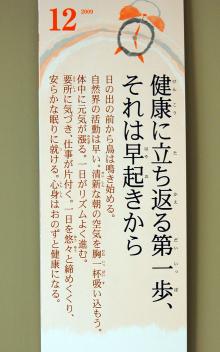 12 2009
健康に立ち返る第一歩、
それは早起きから
日の出の前から鳥は鳴き始める。
自然界の活動は早い。清新な朝の空気を胸一杯吸い込もう。
体中に元気が漲る。一日がリズムよく進む。
要所に気づき、仕事が片付く。一日を悠々と締めくくり、
安らかな眠りに就ける。心身はおのずと健康になる。